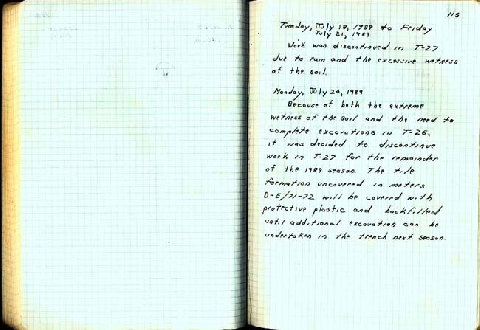 115
Tuesday, July 18, 1989 to Friday
July 21, 1989
Work was discontinued in T-27
due to rain and the excessive wetness
of the soil.
Monday, July 24, 1989
Because of both the extreme
wetness of the soil and the need to
complete excavations in T-26,
it was decided to discontinue
work in T-27 for the remainder
of the 1989 season. The tile
formation uncovered in meters
0-6/71-72 will be covered with
protective plastic and backfilled
until additional excavation can be
undertaken in the trench next season.